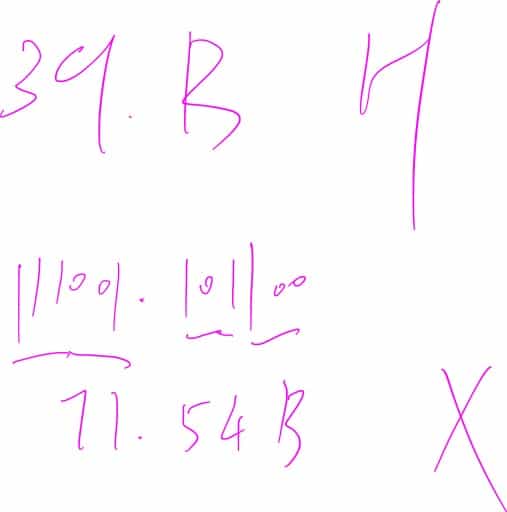 39. B H
111001. 101100
71. 54 B X